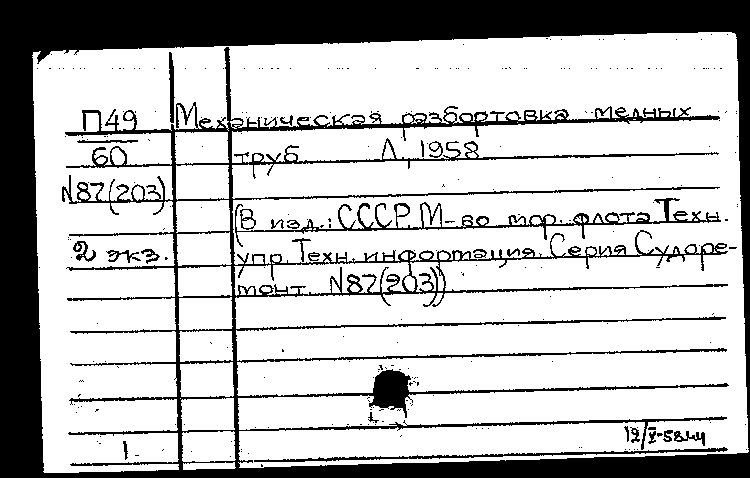 П49 Механическая разбортовка медных
60 труб. Л., 1958
N87(203)
(В изд.: СССР. М-во мор. флота. Техн.
2 экз. упр. Техн. информация. Серия Судоре-
монт. N87(203))
1